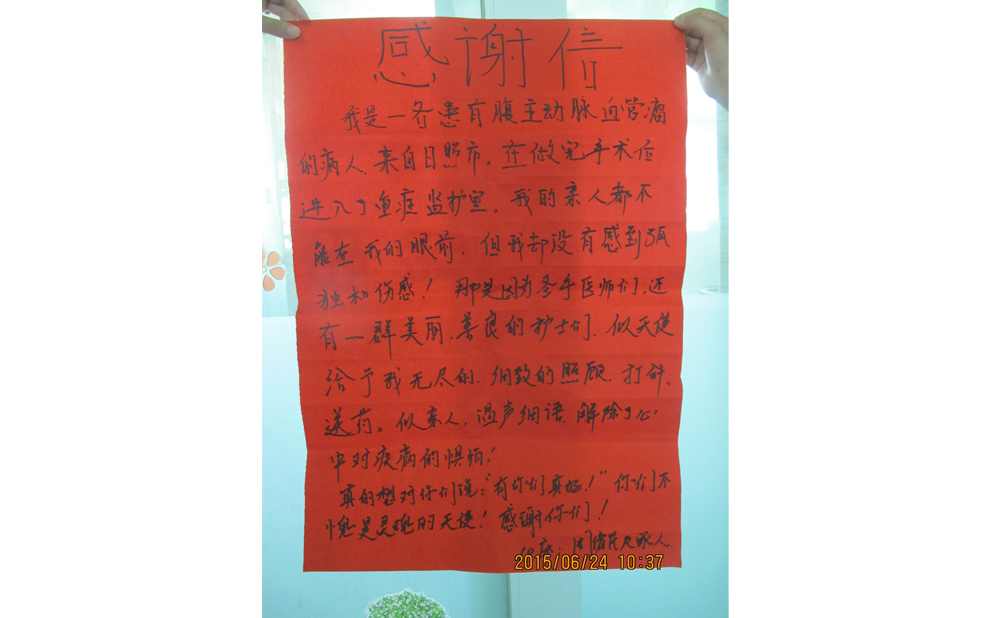 感谢信
我是一名患有腹主动脉血管瘤
的病人,来自日照市,在做完手术后
进入了重症监护室,我的亲人都不
能在我的眼前,但我却没有感到孤
独和伤感!那是因为圣手医师们,还
有一群美丽、善良的护士们,似天使
给予我无尽的、细致的照顾,打针、
送药。似亲人,温声细语,解除了心
中对疾病的惧怕!
真的想对你们说:“有你们真好!”你们不
愧是灵魂的天使!感谢你们!
人
2015/06/24 10:37